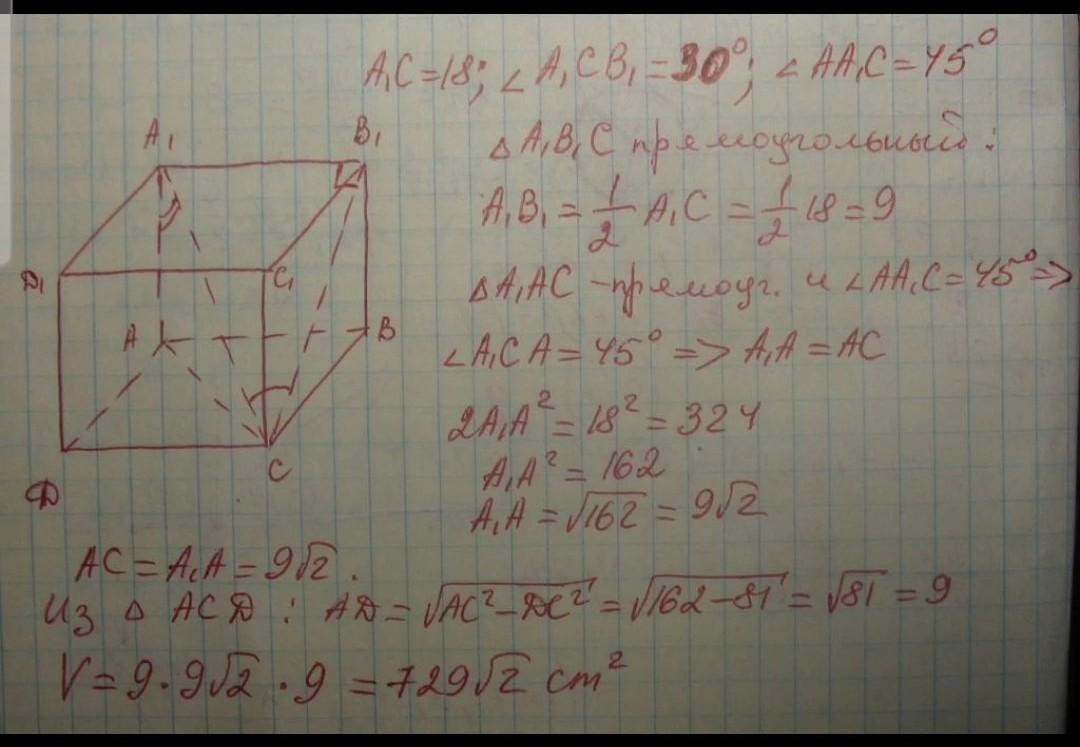 A₁C=18; ∠A₁CB₁=30°; ∠AA₁C=45°
△A₁B₁C прямоугольный:
A₁B₁=1/2 A₁C=1/2 18=9
△A₁AC-прямоуг. и ∠AA₁C=45°=>
∠A₁CA=45°=>A₁A=AC
2A₁A²=18²=324
A₁A²=162
A₁A=√162=9√2
A₁
B₁
D₁
C₁
A
B
D
C
AC=A₁A=9√2.
Из △ACD: AD=√(AC²-DC²)=√(162-81)=√81=9
V=9·9√2·9=729√2 cm²